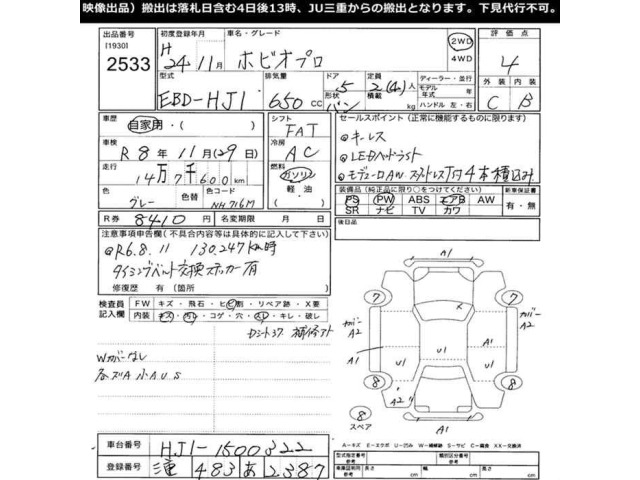 映像出品）搬出は落札日含む4日後13時、JU三重からの搬出となります。下見代行不可。
出品番号 初度登録年月 車名・グレード 評価点
119301
2533
H 24年11月 ホビオプロ 2WD 4WD 4
型式 排気量 ドア 形状 定員 積載 ディーラー・並行 外装 内装
EBD-HJ1 650cc 5 バン 2(4)人 kg モデル年式 年 ハンドル 左・右 C B
車歴 自家用・( ) シフト FAT セールスポイント（正常に機能するものに限ります）
車検 R8年11月(29)日 冷房 AC
◎キーレス
◎LEDヘッドライト
走行 14万7千600km 燃料 ガソリン 軽油 ( )
色 グレー 色コード NH716M
装備品（純正品に限り○をつけてください） 新車保証書
PS PW ABS エアB AW 有・無
SR ナビ TV カワ
R券 8410円 名変期限 月 日 後日品
注意事項申告欄（不具合内容等は具体的に記入して下さい）
◎R6.8.11 130,247km時
タイミングベルト交換ステッカー有
修復歴 有（箇所 ）
検査員記入欄 FW キズ・飛石・ヒビ割・リペア跡・X要
内装 キズ・汚レ・コゲ・穴・スレ・キレ・破レ
Wカバーなし
各ズA小AUS
A1
7 7
カバー A2 カバー A2
A1 U1 U1 A1
8 A2 8
8 スペア A1
A-キズ E-エクボ U-凹み W-補修跡 S-サビ C-腐食 XX-交換済
車台番号 HJ1-1500322
登録番号 三重 483 あ 2387
型式指定番号 参考 類別区分番号 参考
車庫証明用 参考 長さ cm 幅 cm 高さ cm